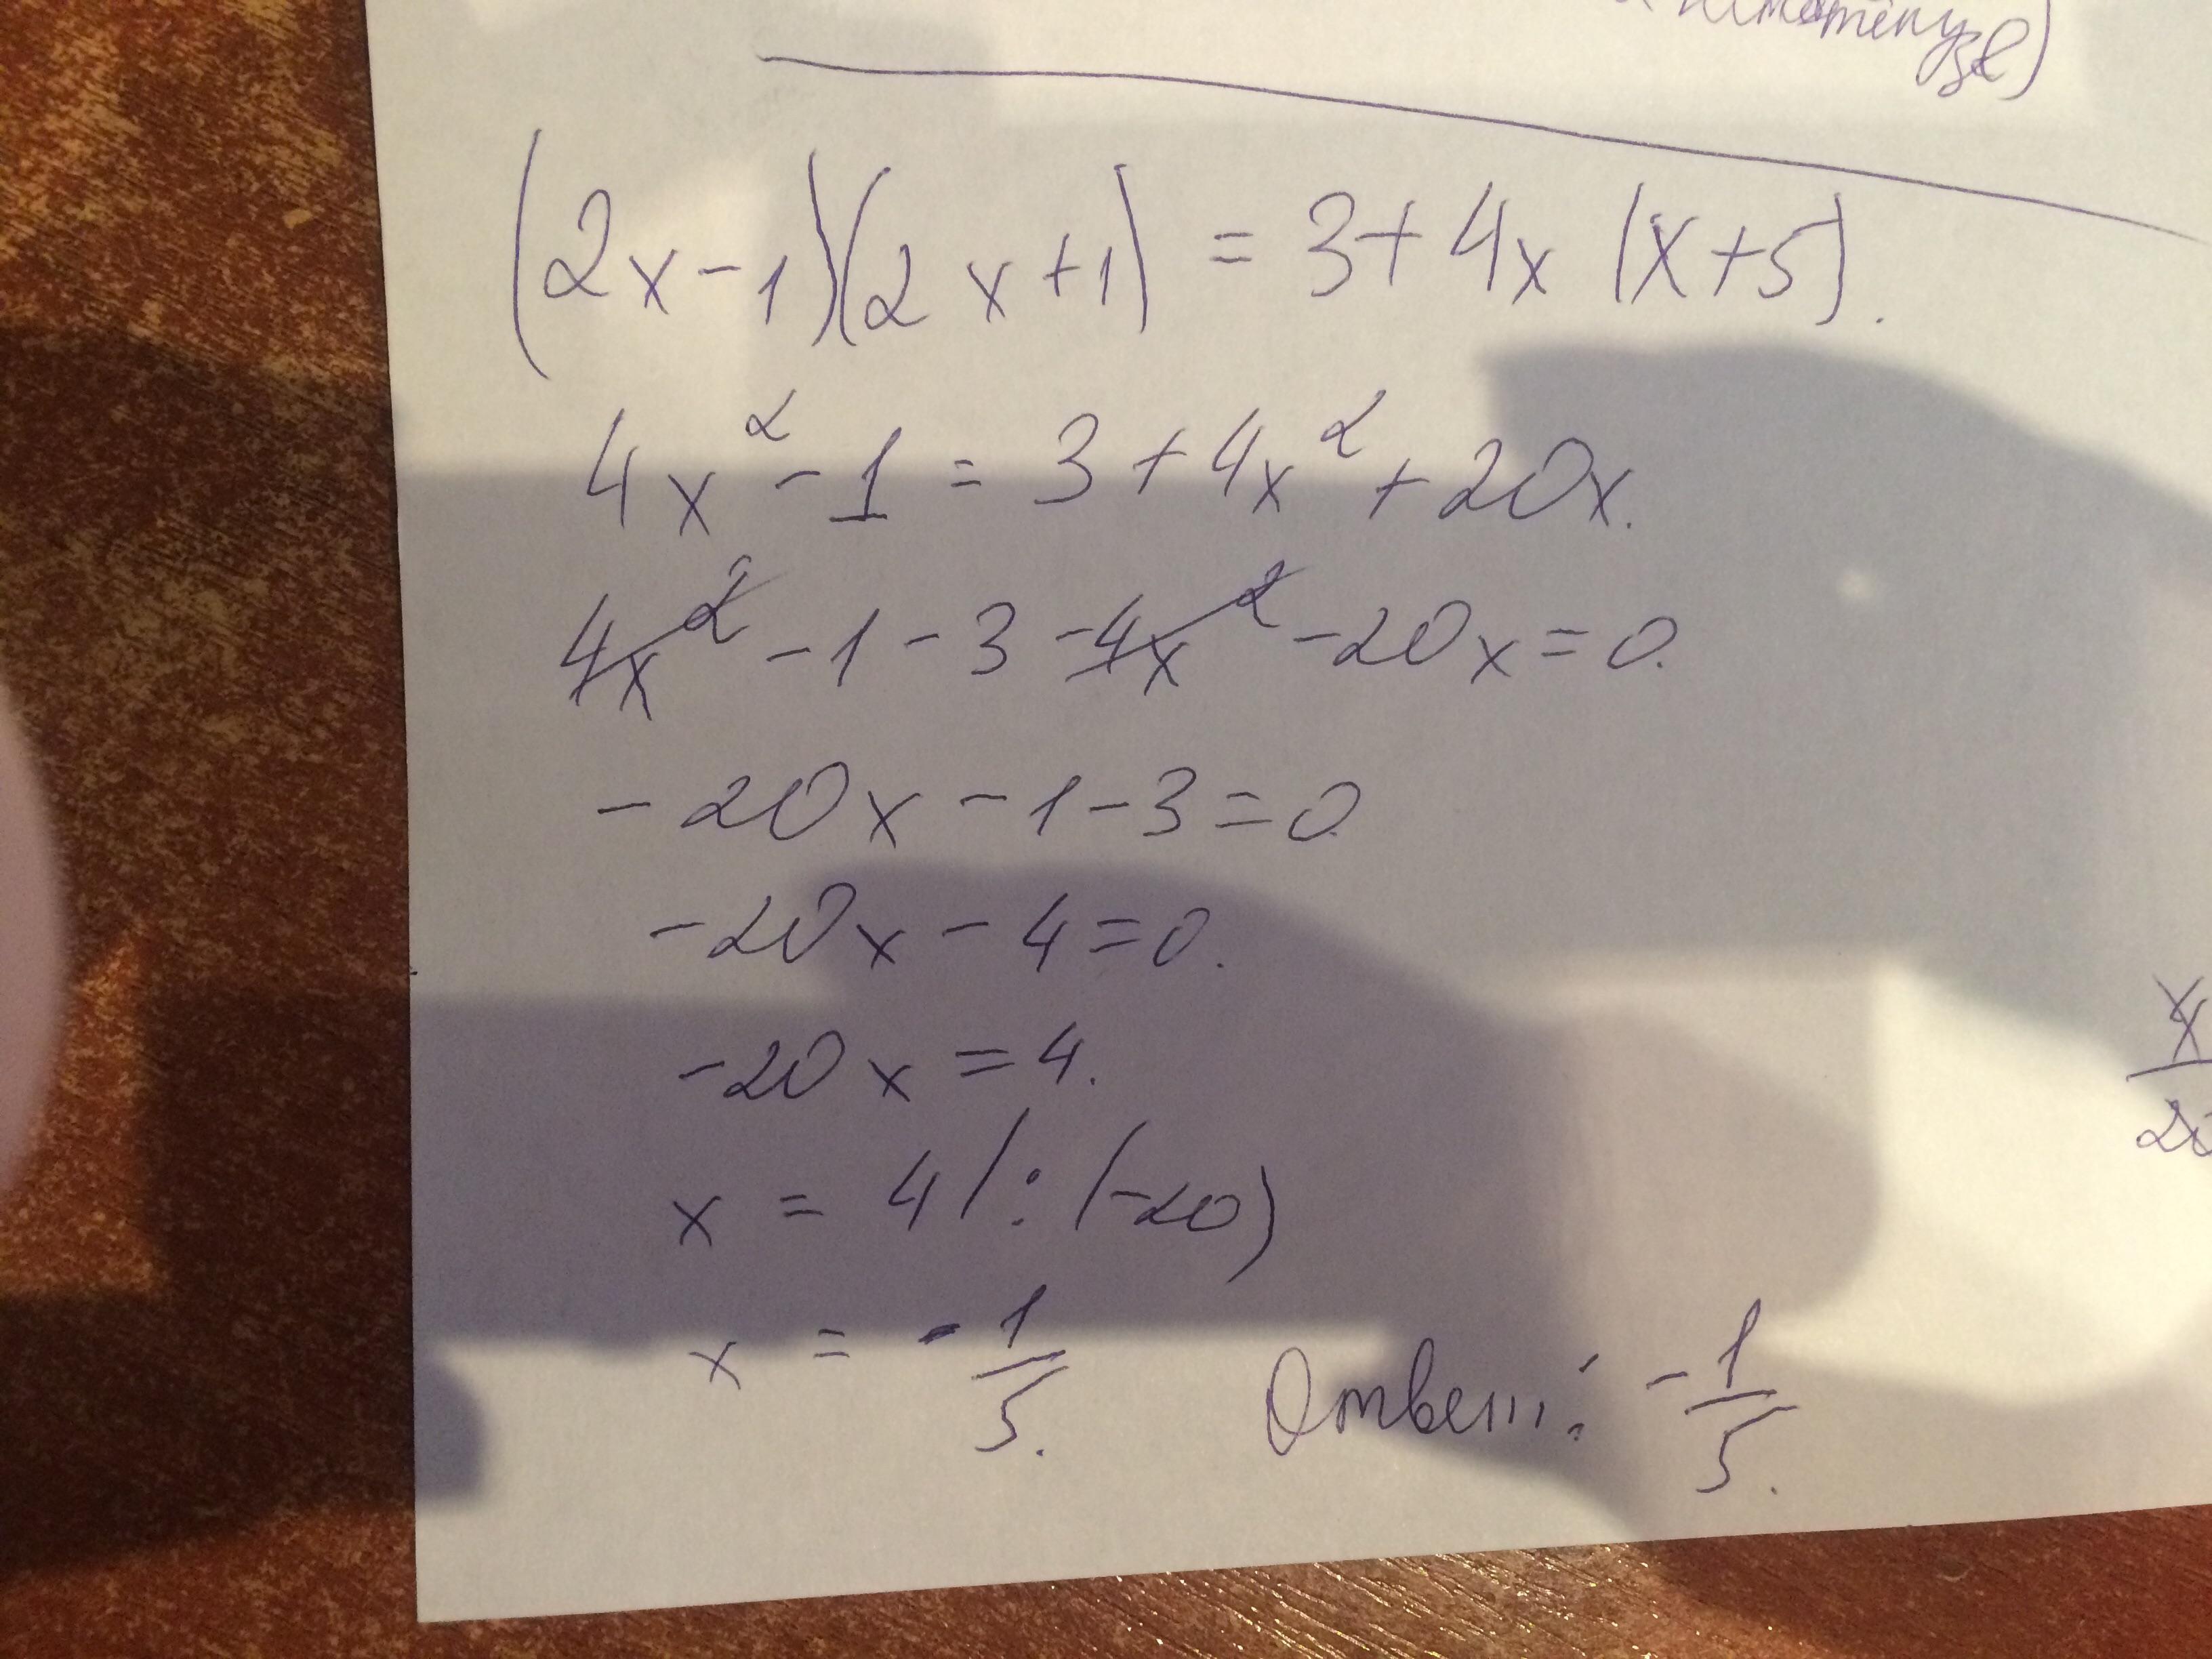 (2x-1)(2x+1) = 3+4x(x+5).
4x² - 1 = 3 + 4x² + 20x.
4x² - 1 - 3 - 4x² - 20x = 0.
- 20x - 1 - 3 = 0.
- 20x - 4 = 0.
- 20x = 4.
x = 4 / : (-20)
x = - 1/5. Ответ: - 1/5.